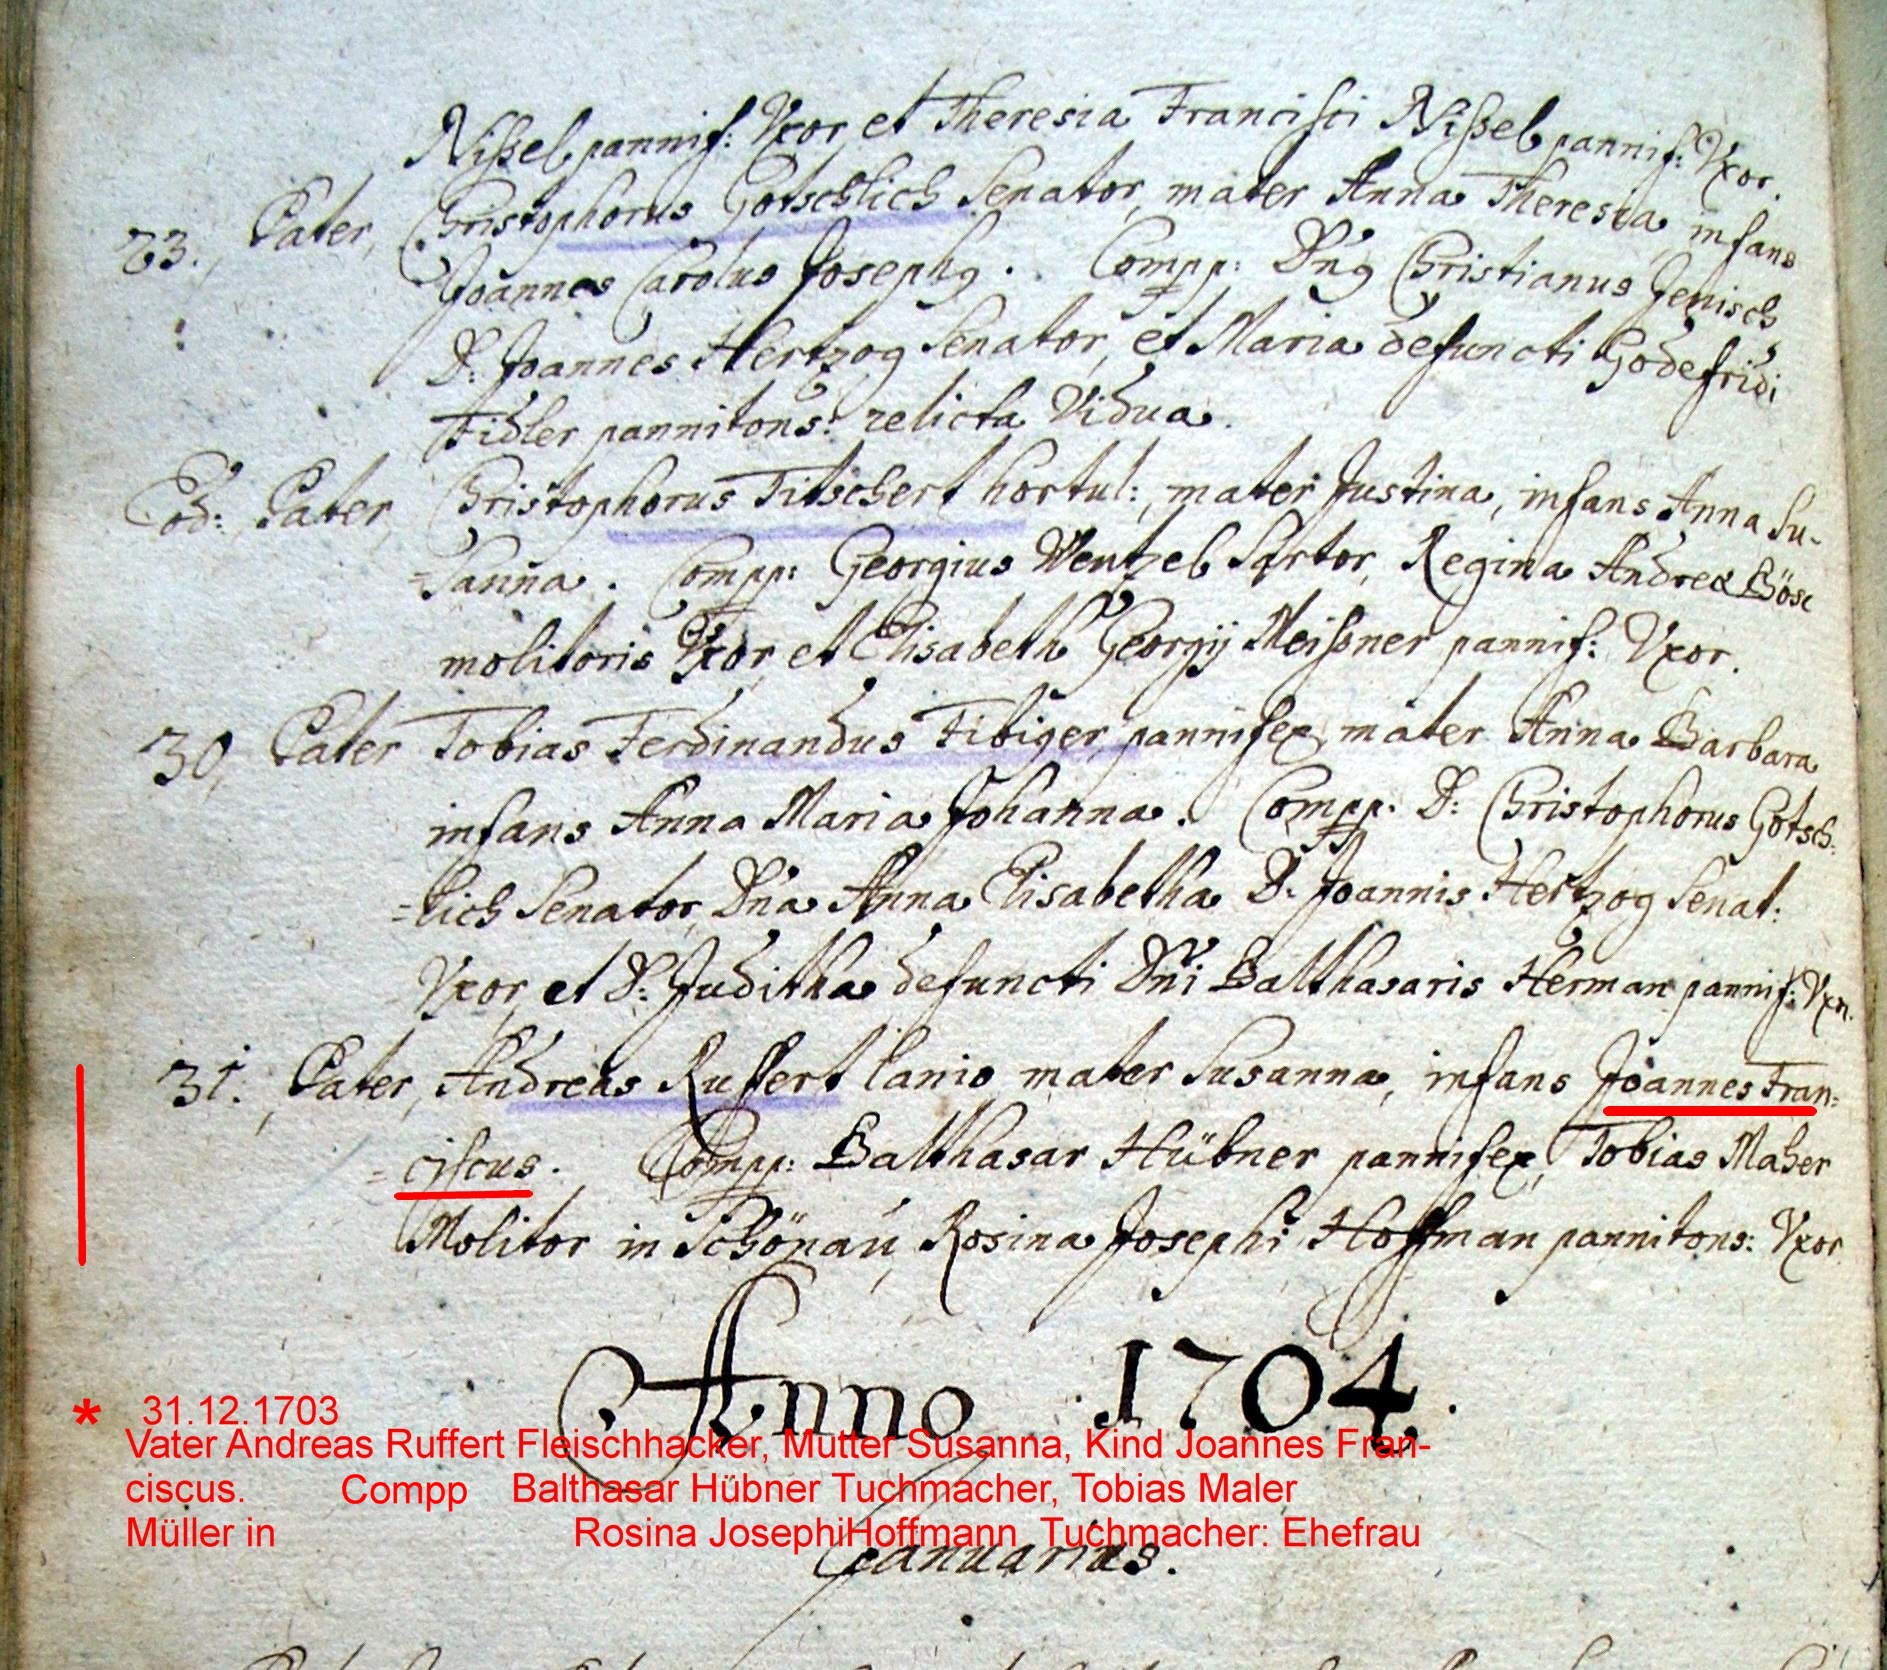 Nißel pannif: Vxor, et Theresia Francisci Nißel pannif: Vxor.
23. Pater, Christophorus Gotschlich Senator, mater Anna Theresia, infans
Joannes Carolus Joseph9. Compp: Dn9 Christianus Jenisch
D. Joannes Hertzog Senator, et Maria defuncti Godefridi
Fidler pannitons: relicta Vidua.
Eod: Pater, Christophorus Titschert hortul:, mater Justina, infans Anna Su-
=sanna. Compp: Georgius Wentzel Sartor, Regina Andreæ Böse
molitoris Vxor, et Elisabeth Georgij Meißner pannif: Vxor.
30, Pater Tobias Ferdinandus Fibiger, pannifex, mater Anna Barbara
infans Anna Maria Johanna. Compp: D: Christophorus Gotsch:
=lich Senator, Dna Anna Elisabetha D. Joannis Hertzog Senat:
Vxor, et D: Juditha defuncti Dni Balthasaris Herman pannif: Vxor.
31. Pater, Andreas Ruffert lanio, mater Susanna, infans Joannes Fran=
=ciscus. Compp: Balthasar Hübner pannifex, Tobias Maher
Molitor in Schönau, Rosina Josephi Hoffman pannitons: Vxor.
Anno 1704.
* 31.12.1703
Vater Andreas Ruffert Fleischhacker, Mutter Susanna, Kind Joannes Fran-
ciscus. Compp Balthasar Hübner Tuchmacher, Tobias Maler
Müller in Rosina JosephiHoffmann, Tuchmacher: Ehefrau
Januarius.